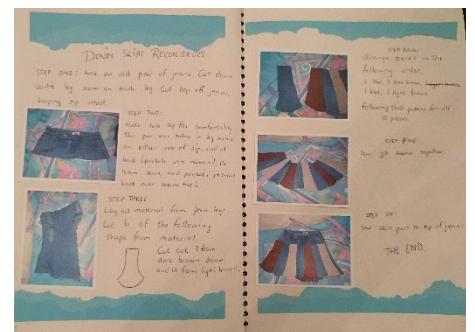 DENIM SKIRT RECONSTRUCT
STEP ONE: Find an old pair of jeans. Cut down
centre leg seam on each leg. Cut top off jeans,
keeping zip intact.
STEP TWO:
Make sure top fits comfortably.
This pair was taken in by
on either side of zip, and at
back (pockets were removed,
seam sewn, and pockets
back over seam
STEP THREE
Lay out material from jean legs.
Cut 6 of the following
shape from material.
Cut out 3 from
dark brown denim
and from light brown.
STEP FOUR:
Arrange pieces in the
following order.
1 blue, 1 dark brown,
1 blue, 1 light brown.
Following this pattern for all
12 pieces.
STEP FIVE
Sew all seams together.
STEP SIX:
Sew skirt part to top of jeans.
THE END.